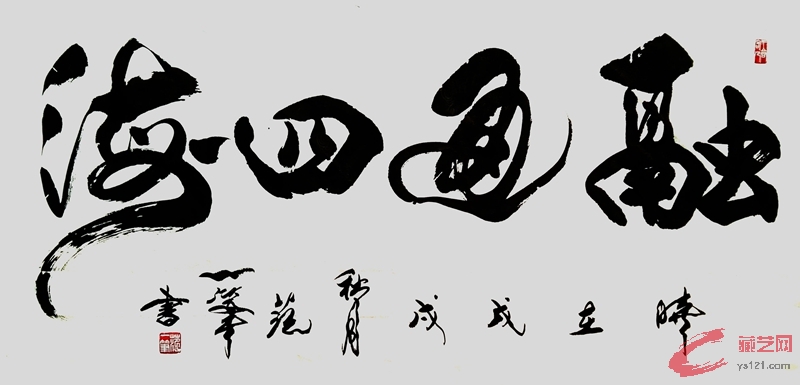 融通四海
时在戊戌秋月范一笔书
藏艺网
ys121.com